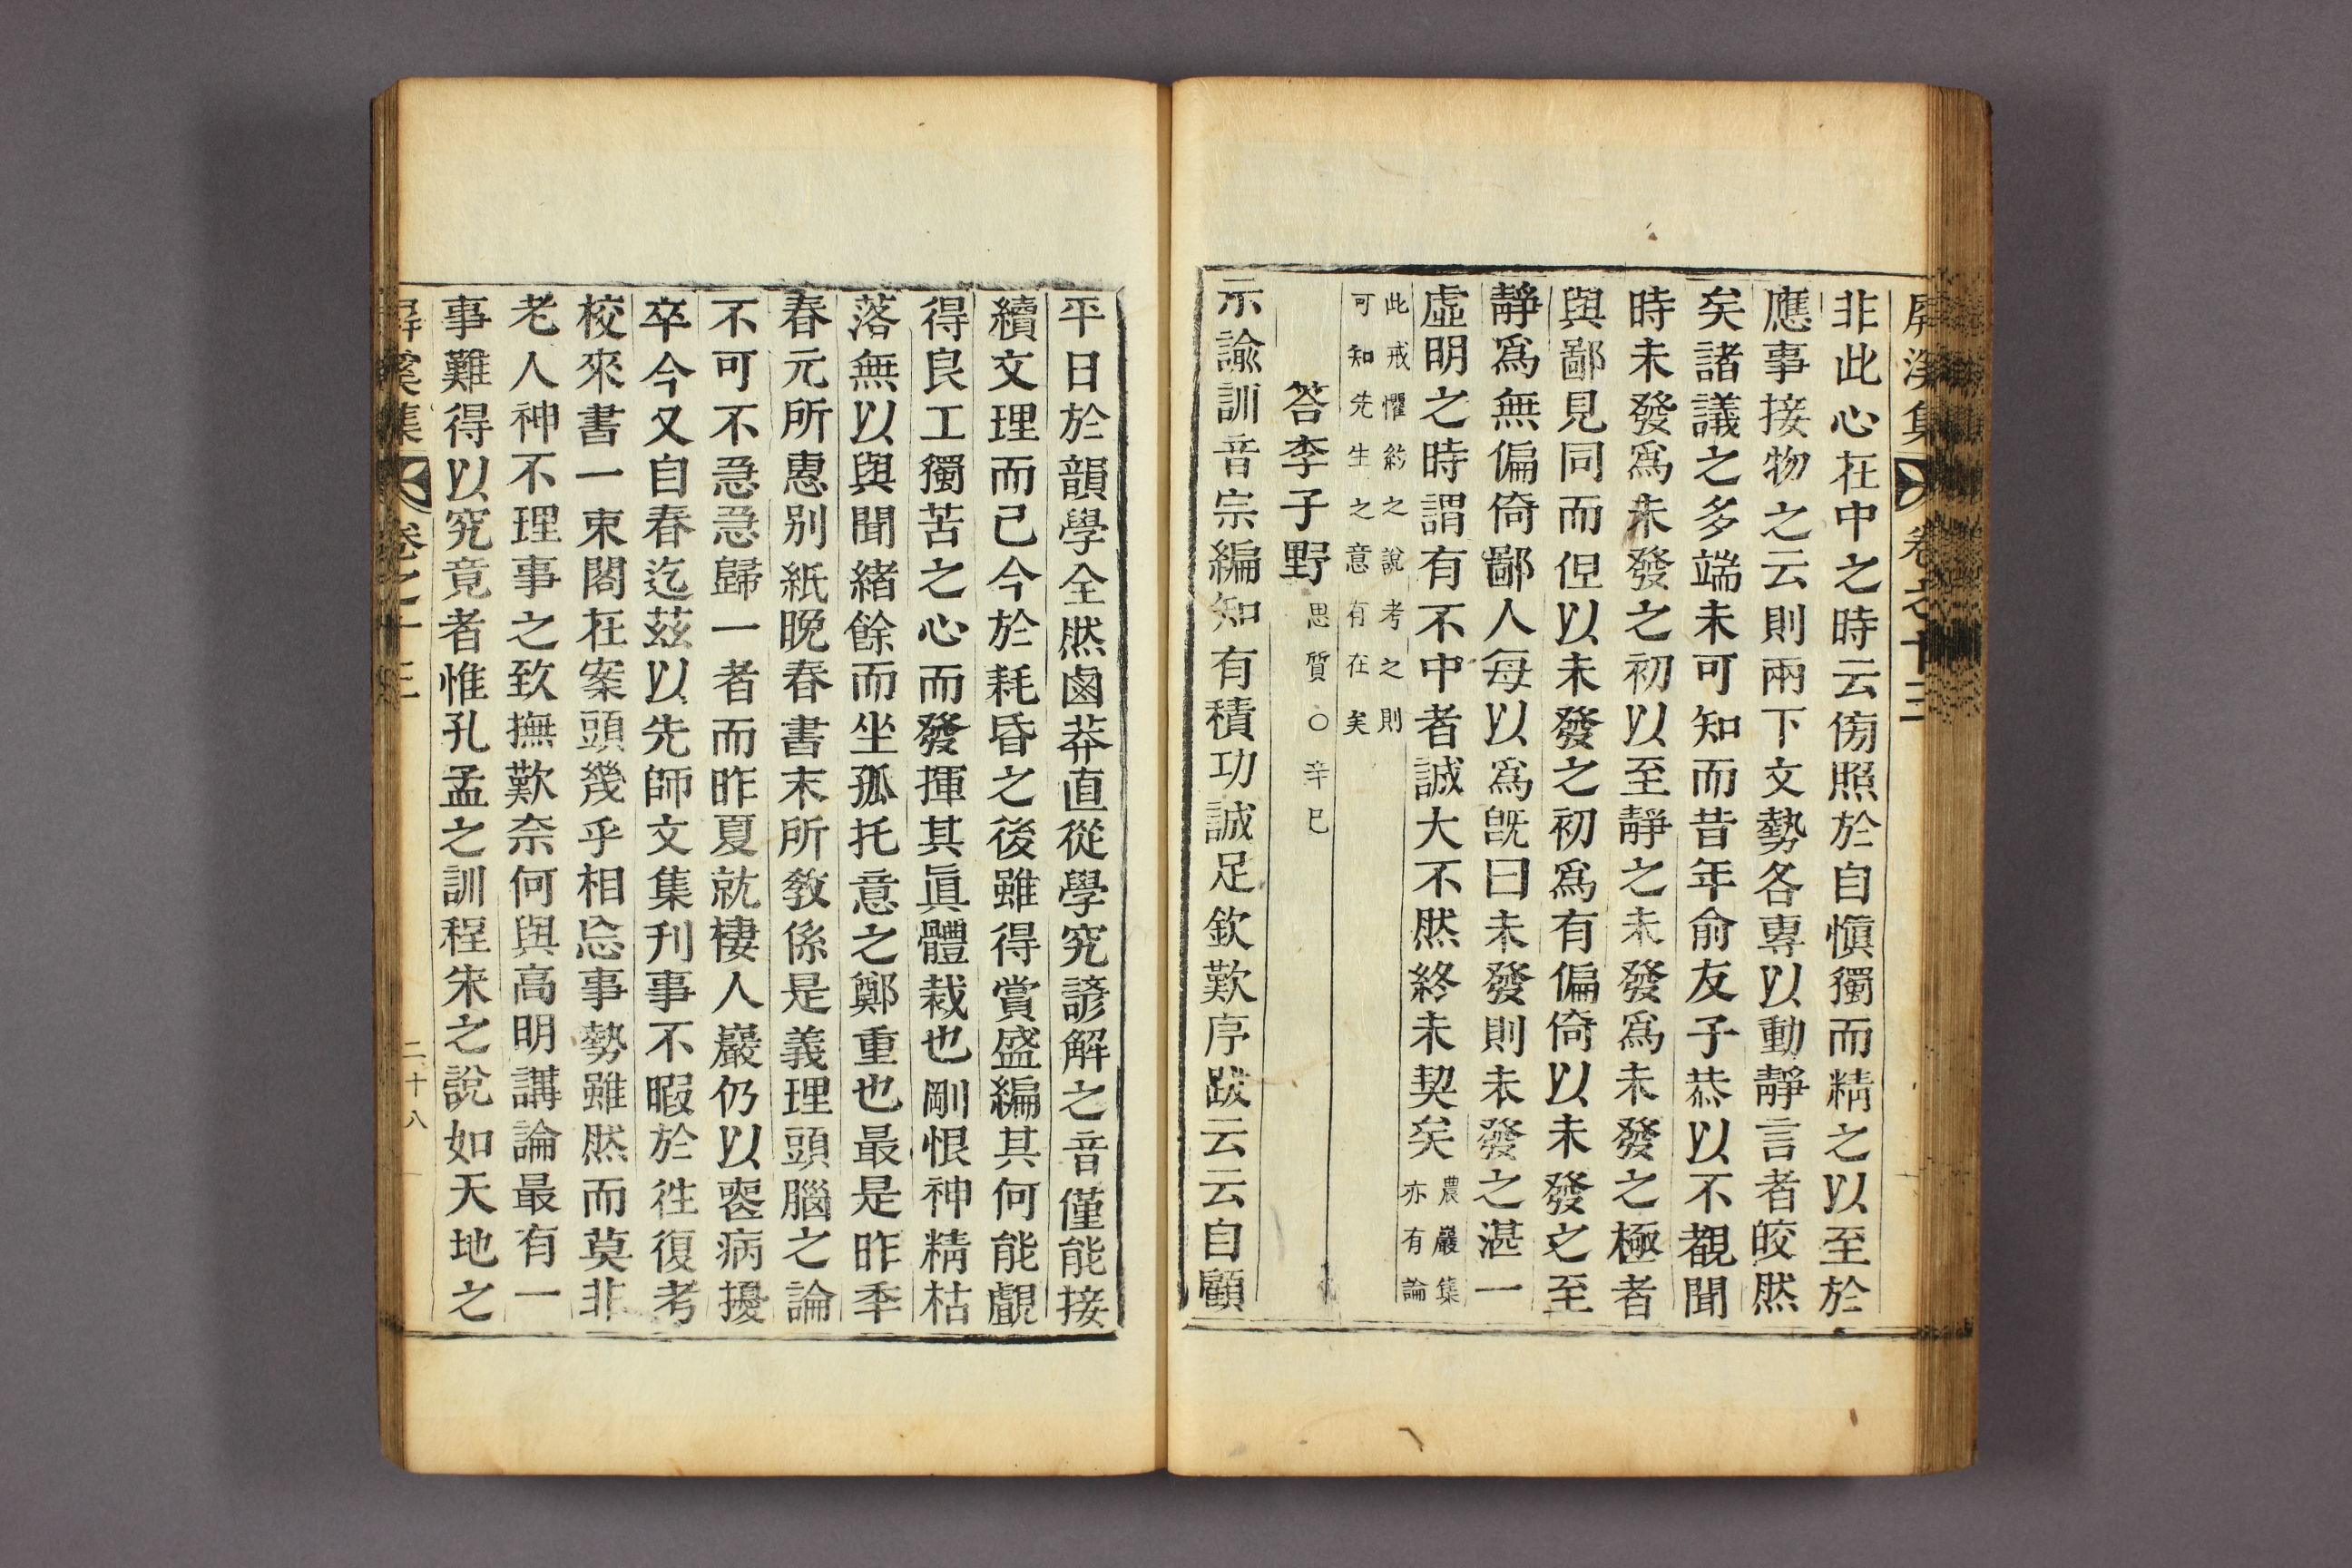 屛溪集 卷之十三
非此心在中之時云傍照於自愼獨而精之以至於
應事接物之云則兩下文勢各專以動靜言者皎然
矣諸議之多端未可知而昔年俞友子恭以不覩聞
時未發爲未發之初以至靜之未發爲未發之極者
與鄙見同而但以未發之初爲有偏倚以未發之至
靜爲無偏倚鄙人每以爲旣曰未發則未發之湛一
虛明之時謂有不中者誠大不然終未契矣農巖集亦有論
此戒懼節之說考之則可知先生之意有在矣
答李子野思質○辛巳
示諭訓音宗編知有積功誠足欽歎序跋云云自顧
平日於韻學全然鹵莽直從學究諺解之音僅能接
續文理而已今於耗昏之後雖得賞盛編其何能覷
得良工獨苦之心而發揮其眞體裁也剛恨神精枯
落無以與聞緖餘而坐孤托意之鄭重也最是昨季
春元所惠別紙晩春書末所敎係是義理頭腦之論
不可不急急歸一者而昨夏就棲人巖仍以喪病擾
卒今又自春迄茲以先師文集刊事不暇於徃復考
校來書一束閣在案頭幾乎相忘事勢雖然而莫非
老人神不理事之致撫歎奈何與高明講論最有一
事難得以究竟者惟孔孟之訓程朱之說如天地之
屛溪集 卷之十三 二十八